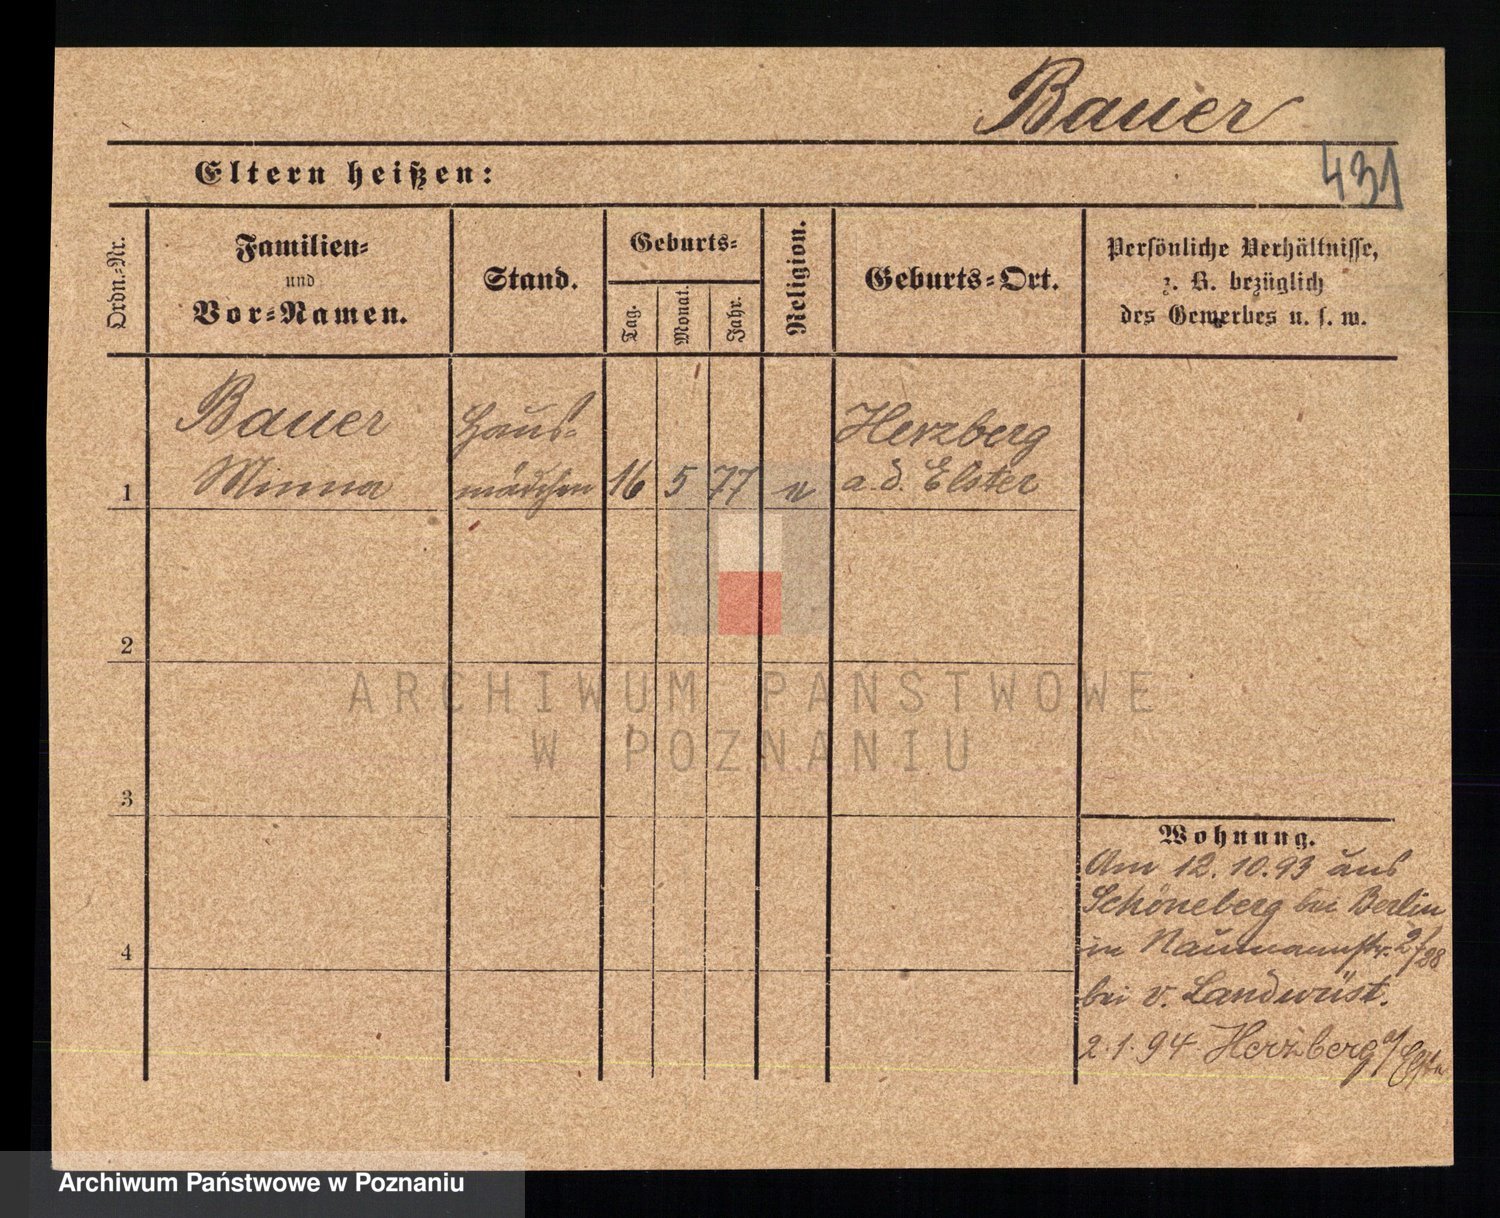 Bauer
Eltern heißen:
431
Ordn.-Nr.
Familien-
und
Vor-Namen.
Stand.
Geburts-
Tag.
Monat.
Jahr.
Religion.
Geburts-Ort.
Persönliche Verhältnisse,
z. B. bezüglich
des Gewerbes u. s. w.
1
Bauer
Minna
Haus-
mädchen
16
5
77
Herzberg
a. d. Elster
2
3
4
Wohnung.
Am 12.10.93 aus
Schöneberg bei Berlin
in Naumannstr. 2/28
bei v. Landwüst.
2.1.94 Herzberg
ARCHIWUM PAŃSTWOWE
W POZNANIU
Archiwum Państwowe w Poznaniu